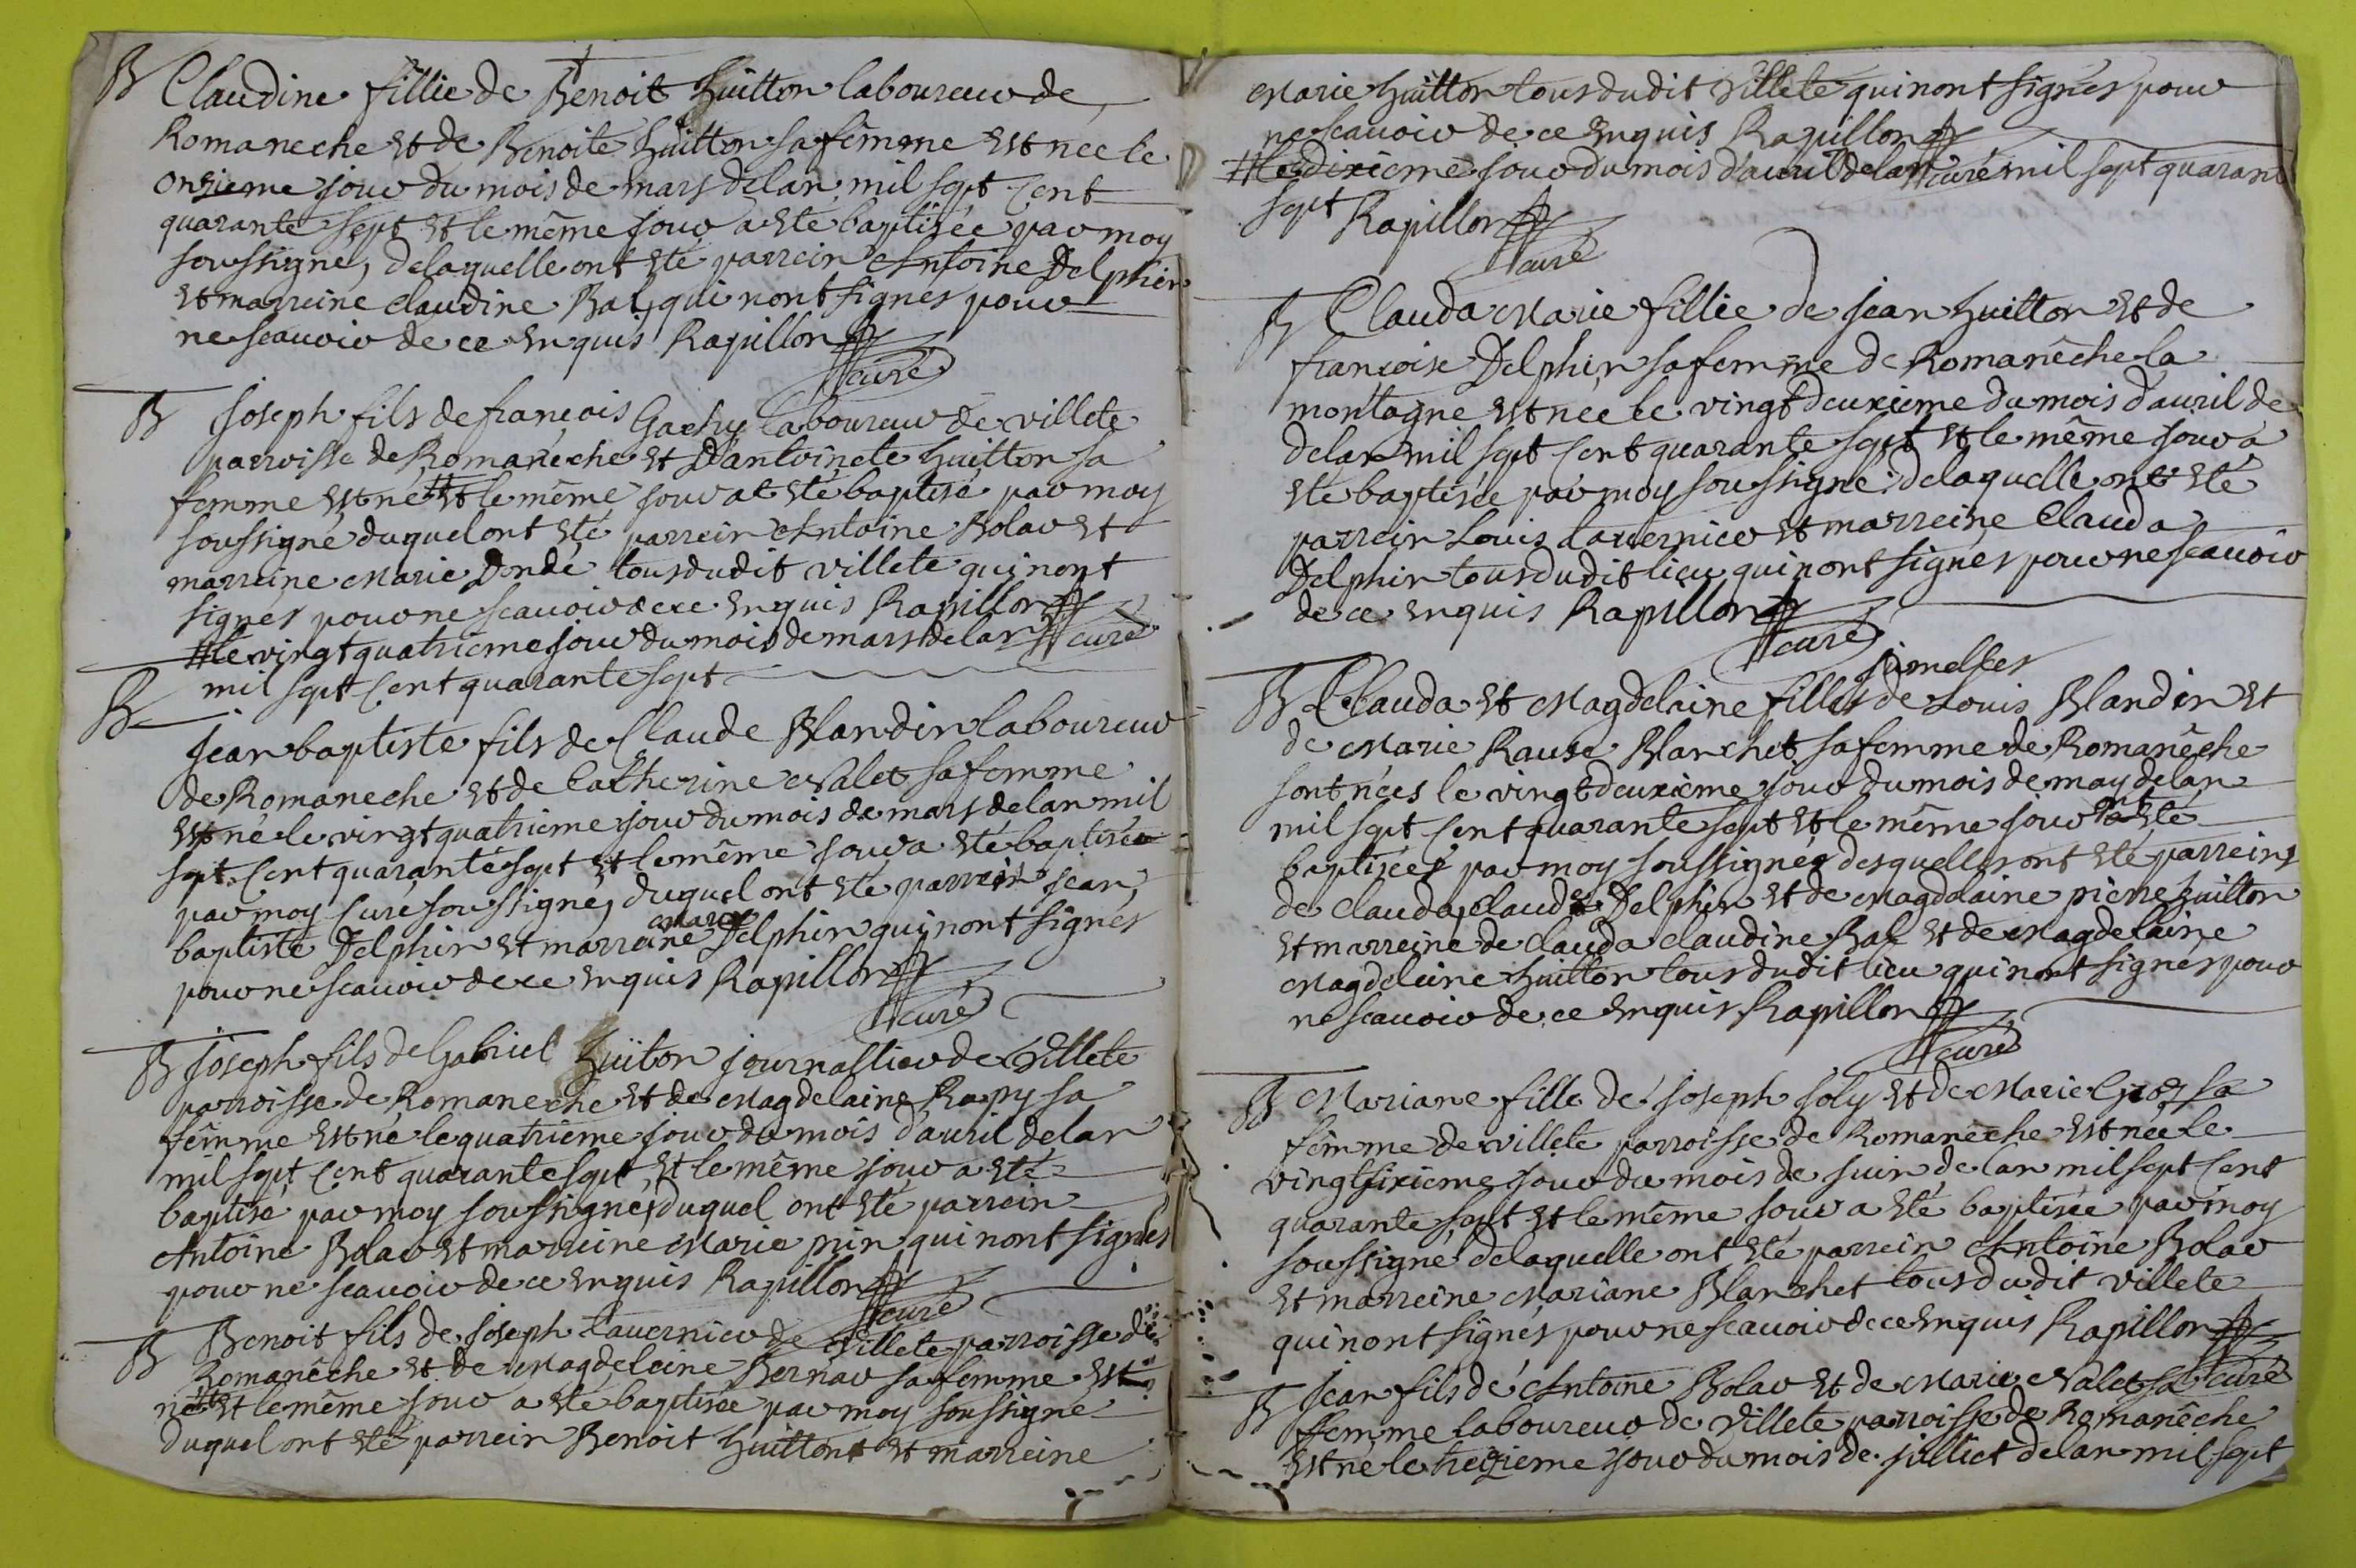 B Claudine fillie de Benoit huitton laboureur de
Romaneche et de Benoite huitton sa femme est nee le
onzieme jour du mois de mars delan mil sept cent
quarante sept et le même jour a eté baptisée par moy
soussigné, delaquelle ont eté parrein Antoine Delphin
et marreine claudine Bal, qui nont signés pour
ne scauoir de ce enquis Rapillon
curé
B Joseph fils de françois Gachy laboureur de villete
parroisse de Romaneche et D'antoinete huitton sa
femme est né # et le même jour at eté baptisé par moy
soussigné duquel ont eté parrein Antoine Bolar et
marreine Marie Dondé tous dudit villete qui nont
signés pour ne scauoir de ce enquis Rapillon
curé
# le vingt quatrieme jour du mois de mars delan
mil sept cent quarante sept
B Jean baptiste fils de Claude Blandin laboureur
de Romaneche et de Catherine Valet sa femme
est né le vingt quatrieme jour du mois de mars delan mil
sept cent quarante sept et le même jour a eté baptisée
par moy Curé soussigné, duquel ont eté parrein jean
baptiste Delphin et marreine marie Delphin qui nont signés
pour ne scauoir de ce enquis Rapillon
curé
B Joseph fils de Gabriel huiton journallier de Villete
parroisse de Romaneche et de Magdelaine Rapy sa
femme est né le quatrieme jour du mois d'auril delan
mil sept cent quarante sept, et le même jour a eté
baptisé par moy soussigné, duquel ont eté parrein
Antoine Bolar et marreine Marie prin qui nont signés
pour ne scauoir de ce enquis Rapillon
curé
B Benoit fils de Joseph tauernier de Villete parroisse de
Romanêche et de Magdeleine Bernar sa femme est
né # et le même jour a eté baptisée par moy soussigné
duquel ont eté parrein Benoit huittont et marreine
Marie huitton tous dudit Villete qui nont signés pour
ne scauoir de ce enquis Rapillon
curé
# le dixieme jour du mois d'auril delan mil sept quarant
sept Rapillon
curé
B Clauda Marie fillie de jean huitton et de
françoise Delphin sa femme de Romanêche la
montagne est nee le vingt deuxieme du mois d'auril de
delan mil sept cent quarante sept et le même jour a
eté baptisée par moy soussigné: delaquelle ont eté
parrein Louis tauernier et marreine Clauda
Delphin tous dudit lieu qui nont signés pour ne scauoir
de ce enquis Rapillon
curé
B Clauda et Magdelaine filles jumelles de Louis Blandin et
de Marie Rause Blanchet sa femme de Romanêche
sont nées le vingt deuxieme jour du mois de may delan
mil sept cent quarante sept et le même jour ont eté
baptisées par moy soussigné desquelles ont eté parreins
de clauda, claude Delphin et de Magdalaine pierre huitton
et marreine de clauda claudine Bal et de Magdelaine
Magdeleine huitton tous dudit lieu qui nont signés pour
ne scauoir de ce enquis Rapillon
curé
B Mariane fille de Joseph Joly et de Marie sa
femme de villete parroisse de Romanêche est née le
vingt sixieme jour du mois de juin de lan mil sept cent
quarante sept et le même jour a eté baptisée par moy
soussigné delaquelle ont eté parrein Antoine Bolar
et marreine Mariane Blanchet tous dudit villete
qui nont signés pour ne scauoir de ce enquis Rapillon
curé
B Jean fils de Antoine Bolar et de Marie Valet sa
femme laboureur de Villete parroisse de Romanêche
est né le treizieme jour du mois de julliet delan mil sept